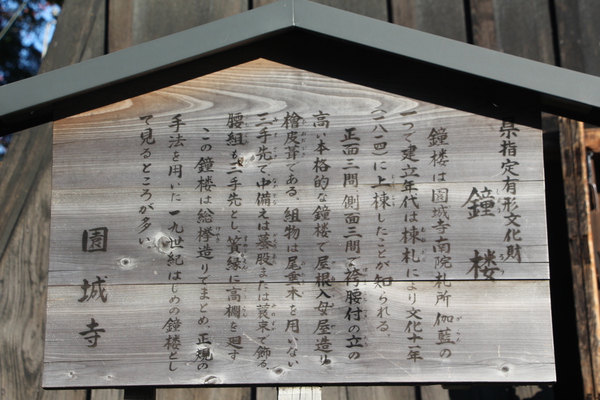 県指定有形文化財
鐘楼
鐘楼は園城寺南院札所伽藍の
一つで建立年代は棟札により文化十一年
(一八一四)に上棟したことが知られる。
正面三間側面三間で袴腰付の立の
高い本格的な鐘楼で屋根入母屋造り
檜皮葺である。組物は尾垂木を用いない
三手先で、中備えは蟇股または蓑束で飾る。
腰組も三手先とし、簀縁に高欄を廻す
この鐘楼は総欅造りでまとめ、正規の
手法を用いた一九世紀はじめの鐘楼とし
て見るところが多い。
園城寺